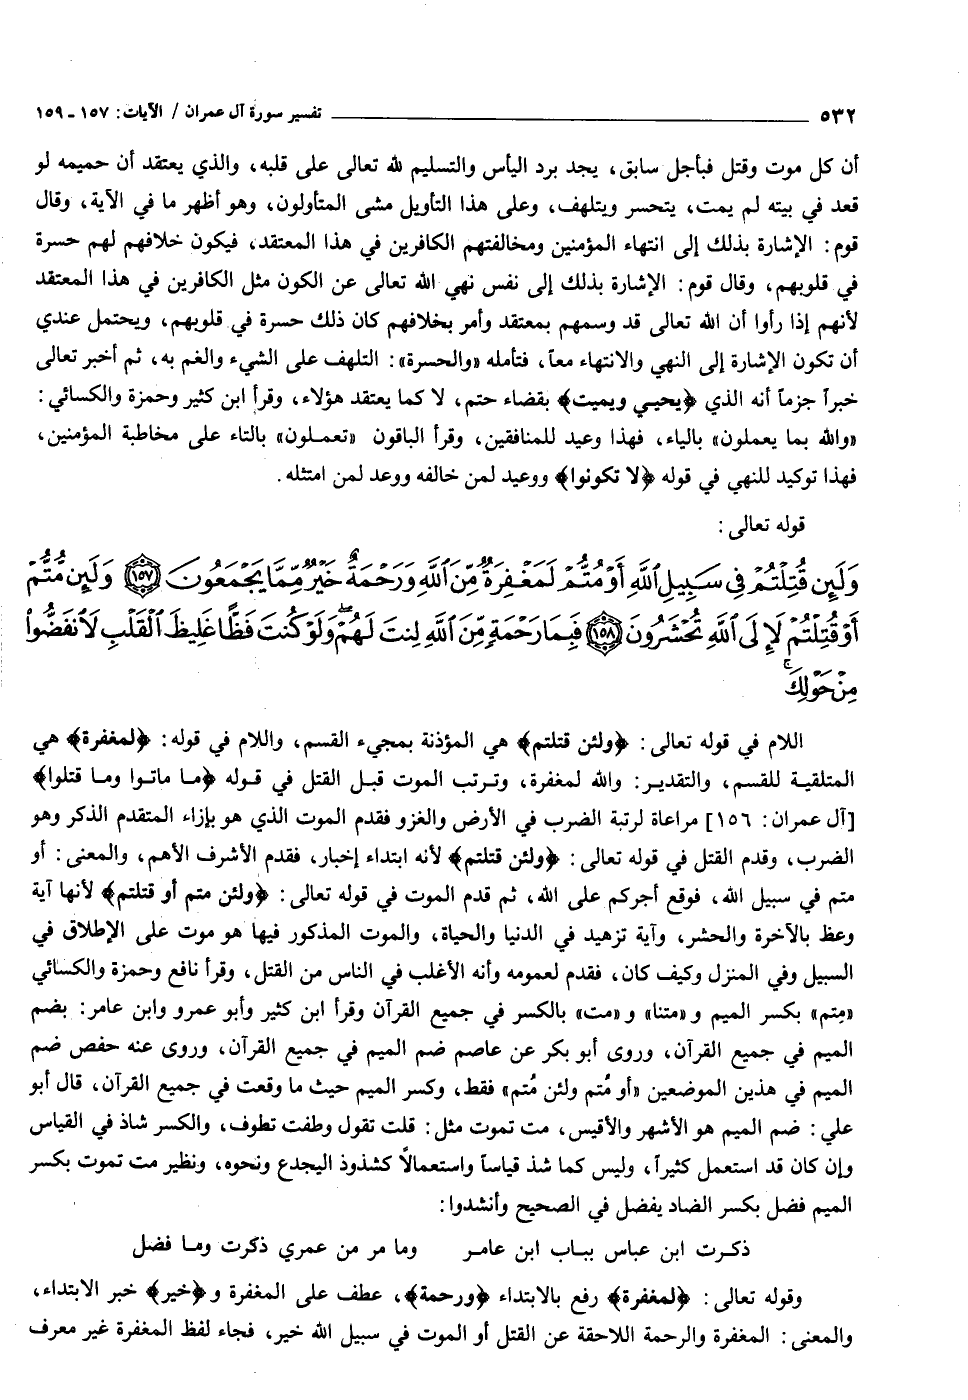 ٥٣٢ تفسير سورة آل عمران / الآيات: ١٥٧ ـ ١٥٩
أن كل موت وقتل فبأجل سابق، يجد برد اليأس والتسليم لله تعالى على قلبه، والذي يعتقد أن حميمه لو
قعد في بيته لم يمت، يتحسر ويتلهف، وعلى هذا التأويل مشى المتأولون، وهو أظهر ما في الآية، وقال
قوم: الإشارة بذلك إلى انتهاء المؤمنين ومخالفتهم الكافرين في هذا المعتقد، فيكون خلافهم لهم حسرة
في قلوبهم، وقال قوم: الإشارة بذلك إلى نفس نهي الله تعالى عن الكون مثل الكافرين في هذا المعتقد
لأنهم إذا رأوا أن الله تعالى قد وسمهم بمعتقد وأمر بخلافهم كان ذلك حسرة في قلوبهم، ويحتمل عندي
أن تكون الإشارة إلى النهي والانتهاء معاً، فتأمله «والحسرة»: التلهف على الشيء والغم به، ثم أخبر تعالى
خبراً جزماً أنه الذي ﴿يحيي ويميت﴾ بقضاء حتم، لا كما يعتقد هؤلاء، وقرأ ابن كثير وحمزة والكسائي:
«والله بما يعملون» بالياء، فهذا وعيد للمنافقين، وقرأ الباقون «تعملون» بالتاء على مخاطبة المؤمنين،
فهذا توكيد للنهي في قوله ﴿لا تكونوا﴾ ووعيد لمن خالفه ووعد لمن امتثله.
قوله تعالى:
وَلَئِن قُتِلْتُمْ فِي سَبِيلِ ٱللَّهِ أَوْ مُتُّمْ لَمَغْفِرَةٌ مِّنَ ٱللَّهِ وَرَحْمَةٌ خَيْرٌ مِّمَّا يَجْمَعُونَ ﴿١٥٧﴾ وَلَئِن مُّتُّمْ
أَوْ قُتِلْتُمْ لَإِلَى ٱللَّهِ تُحْشَرُونَ ﴿١٥٨﴾ فَبِمَا رَحْمَةٍ مِّنَ ٱللَّهِ لِنتَ لَهُمْ ۖ وَلَوْ كُنتَ فَظًّا غَلِيظَ ٱلْقَلْبِ لَٱنفَضُّوا۟
مِنْ حَوْلِكَ ۖ
اللام في قوله تعالى: ﴿ولئن قتلتم﴾ هي المؤذنة بمجيء القسم، واللام في قوله: ﴿لمغفرة﴾ هي
المتلقية للقسم، والتقدير: والله لمغفرة، وترتب الموت قبل القتل في قوله ﴿ما ماتوا وما قتلوا﴾
[آل عمران: ١٥٦] مراعاة لرتبة الضرب في الأرض والغزو فقدم الموت الذي هو بإزاء المتقدم الذكر وهو
الضرب، وقدم القتل في قوله تعالى: ﴿ولئن قتلتم﴾ لأنه ابتداء إخبار، فقدم الأشرف الأهم، والمعنى: أو
متم في سبيل الله، فوقع أجركم على الله، ثم قدم الموت في قوله تعالى: ﴿ولئن متم أو قتلتم﴾ لأنها آية
وعظ بالآخرة والحشر، وآية تزهيد في الدنيا والحياة، والموت المذكور فيها هو موت على الإطلاق في
السبيل وفي المنزل وكيف كان، فقدم لعمومه وأنه الأغلب في الناس من القتل، وقرأ نافع وحمزة والكسائي
«مِتم» بكسر الميم و«متنا» و«مت» بالكسر في جميع القرآن وقرأ ابن كثير وأبو عمرو وابن عامر: بضم
الميم في جميع القرآن، وروى أبو بكر عن عاصم ضم الميم في جميع القرآن، وروى عنه حفص ضم
الميم في هذين الموضعين «أو مُتم ولئن مُتم» فقط، وكسر الميم حيث ما وقعت في جميع القرآن، قال أبو
علي: ضم الميم هو الأشهر والأقيس، مت تموت مثل: قلت تقول وطفت تطوف، والكسر شاذ في القياس
وإن كان قد استعمل كثيراً، وليس كما شذ قياساً واستعمالاً كشذوذ اليجدع ونحوه، ونظير مت تموت بكسر
الميم فضل بكسر الضاد يفضل في الصحيح وأنشدوا:
ذكرت ابن عباس بباب ابن عامر وما مر من عمري ذكرت وما فضل
وقوله تعالى: ﴿لمغفرة﴾ رفع بالابتداء ﴿ورحمة﴾، عطف على المغفرة و﴿خير﴾ خبر الابتداء،
والمعنى: المغفرة والرحمة اللاحقة عن القتل أو الموت في سبيل الله خير، فجاء لفظ المغفرة غير معرف